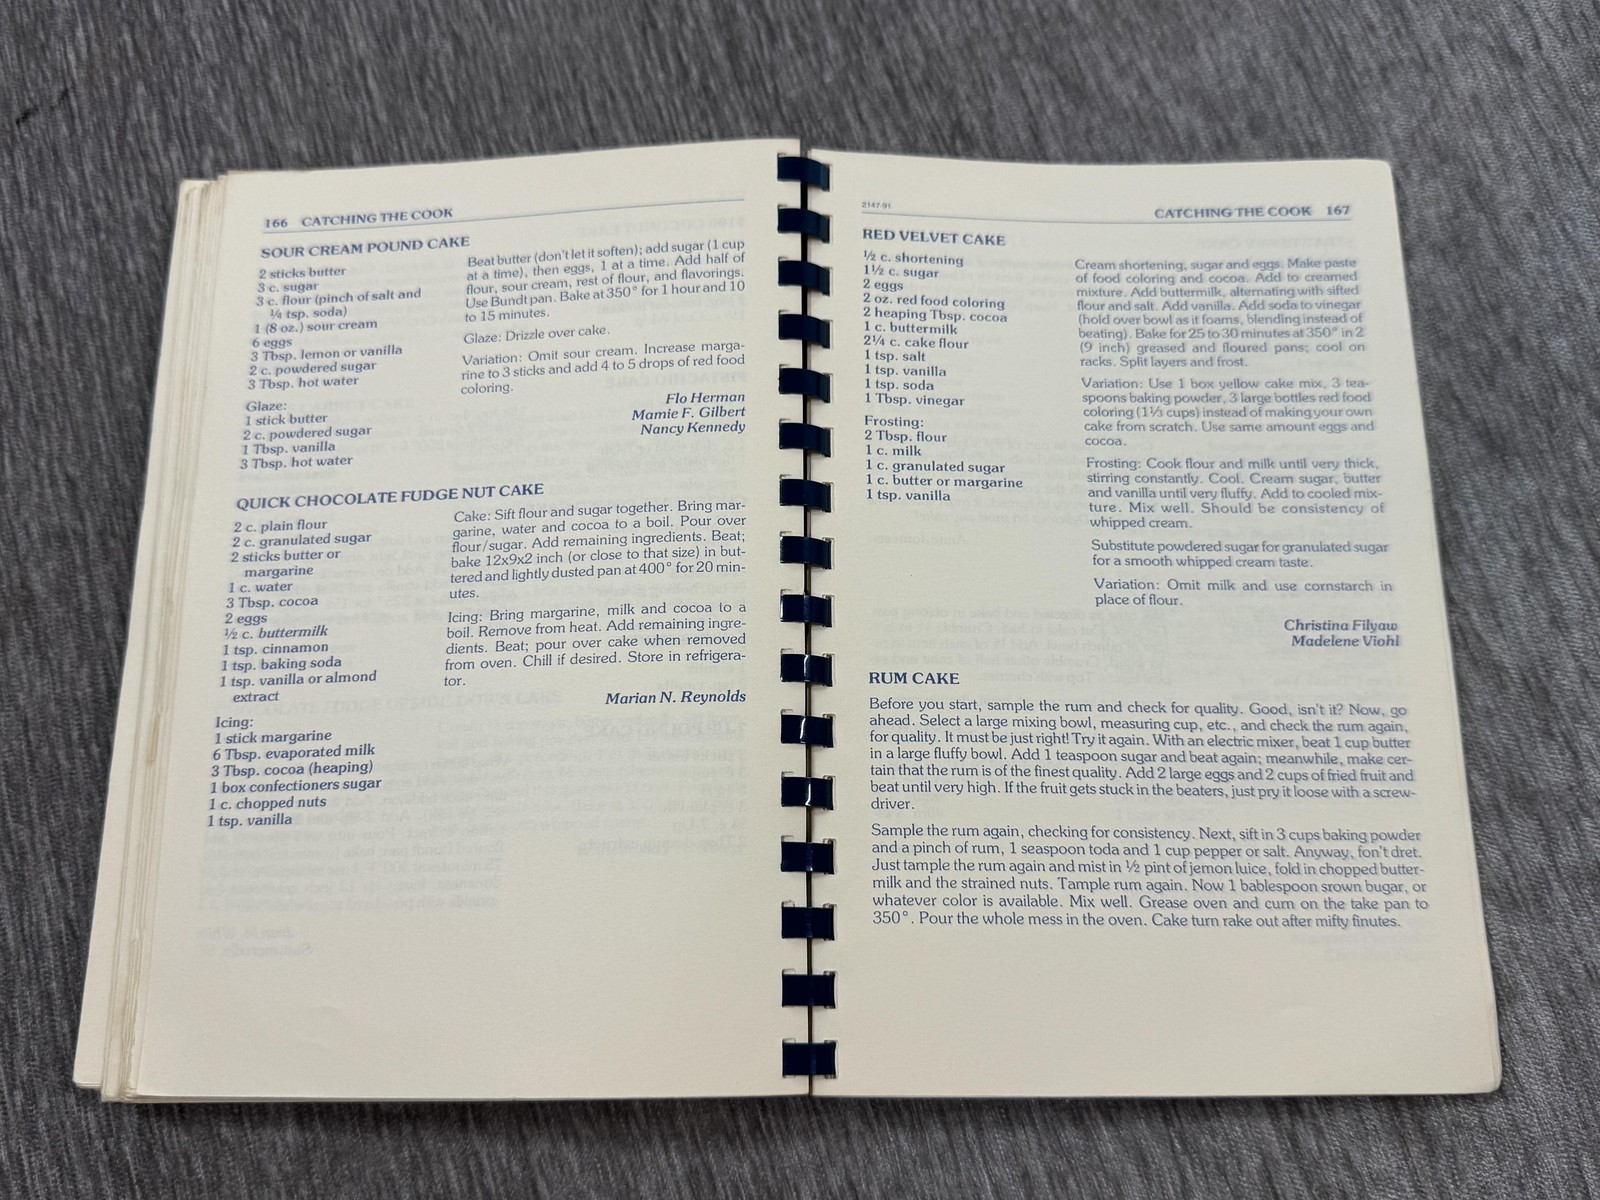 166 CATCHING THE COOK
SOUR CREAM POUND CAKE
2 sticks butter
3 c. sugar
3 c. flour (pinch of salt and
¼ tsp. soda)
1 (8 oz.) sour cream
6 eggs
3 Tbsp. lemon or vanilla
2 c. powdered sugar
3 Tbsp. hot water
Glaze:
1 stick butter
2 c. powdered sugar
1 Tbsp. vanilla
3 Tbsp. hot water
Beat butter (don't let it soften); add sugar (1 cup
at a time), then eggs, 1 at a time. Add half of
flour, sour cream, rest of flour, and flavorings.
Use Bundt pan. Bake at 350° for 1 hour and 10
to 15 minutes.
Glaze: Drizzle over cake.
Variation: Omit sour cream. Increase marga-
rine to 3 sticks and add 4 to 5 drops of red food
coloring.
Flo Herman
Mamie F. Gilbert
Nancy Kennedy
QUICK CHOCOLATE FUDGE NUT CAKE
2 c. plain flour
2 c. granulated sugar
2 sticks butter or
margarine
1 c. water
3 Tbsp. cocoa
2 eggs
½ c. buttermilk
1 tsp. cinnamon
1 tsp. baking soda
1 tsp. vanilla or almond
extract
Icing:
1 stick margarine
6 Tbsp. evaporated milk
3 Tbsp. cocoa (heaping)
1 box confectioners sugar
1 c. chopped nuts
1 tsp. vanilla
Cake: Sift flour and sugar together. Bring mar-
garine, water and cocoa to a boil. Pour over
flour/sugar. Add remaining ingredients. Beat;
bake 12x9x2 inch (or close to that size) in but-
tered and lightly dusted pan at 400° for 20 min-
utes.
Icing: Bring margarine, milk and cocoa to a
boil. Remove from heat. Add remaining ingre-
dients. Beat; pour over cake when removed
from oven. Chill if desired. Store in refrigera-
tor.
Marian N. Reynolds
2147-91
CATCHING THE COOK 167
RED VELVET CAKE
½ c. shortening
1½ c. sugar
2 eggs
2 oz. red food coloring
2 heaping Tbsp. cocoa
1 c. buttermilk
2¼ c. cake flour
1 tsp. salt
1 tsp. vanilla
1 tsp. soda
1 Tbsp. vinegar
Frosting:
2 Tbsp. flour
1 c. milk
1 c. granulated sugar
1 c. butter or margarine
1 tsp. vanilla
Cream shortening, sugar and eggs. Make paste
of food coloring and cocoa. Add to creamed
mixture. Add buttermilk, alternating with sifted
flour and salt. Add vanilla. Add soda to vinegar
(hold over bowl as it foams, blending instead of
beating). Bake for 25 to 30 minutes at 350° in 2
(9 inch) greased and floured pans; cool on
racks. Split layers and frost.
Variation: Use 1 box yellow cake mix, 3 tea-
spoons baking powder, 3 large bottles red food
coloring (1⅓ cups) instead of making your own
cake from scratch. Use same amount eggs and
cocoa.
Frosting: Cook flour and milk until very thick,
stirring constantly. Cool. Cream sugar, butter
and vanilla until very fluffy. Add to cooled mix-
ture. Mix well. Should be consistency of
whipped cream.
Substitute powdered sugar for granulated sugar
for a smooth whipped cream taste.
Variation: Omit milk and use cornstarch in
place of flour.
Christina Filyaw
Madelene Viohl
RUM CAKE
Before you start, sample the rum and check for quality. Good, isn't it? Now, go
ahead. Select a large mixing bowl, measuring cup, etc., and check the rum again,
for quality. It must be just right! Try it again. With an electric mixer, beat 1 cup butter
in a large fluffy bowl. Add 1 teaspoon sugar and beat again; meanwhile, make cer-
tain that the rum is of the finest quality. Add 2 large eggs and 2 cups of fried fruit and
beat until very high. If the fruit gets stuck in the beaters, just pry it loose with a screw-
driver.
Sample the rum again, checking for consistency. Next, sift in 3 cups baking powder
and a pinch of rum, 1 seaspoon toda and 1 cup pepper or salt. Anyway, fon't dret.
Just tample the rum again and mist in ½ pint of jemon luice, fold in chopped butter-
milk and the strained nuts. Tample rum again. Now 1 bablespoon srown bugar, or
whatever color is available. Mix well. Grease oven and curn on the take pan to
350°. Pour the whole mess in the oven. Cake turn rake out after mifty finutes.